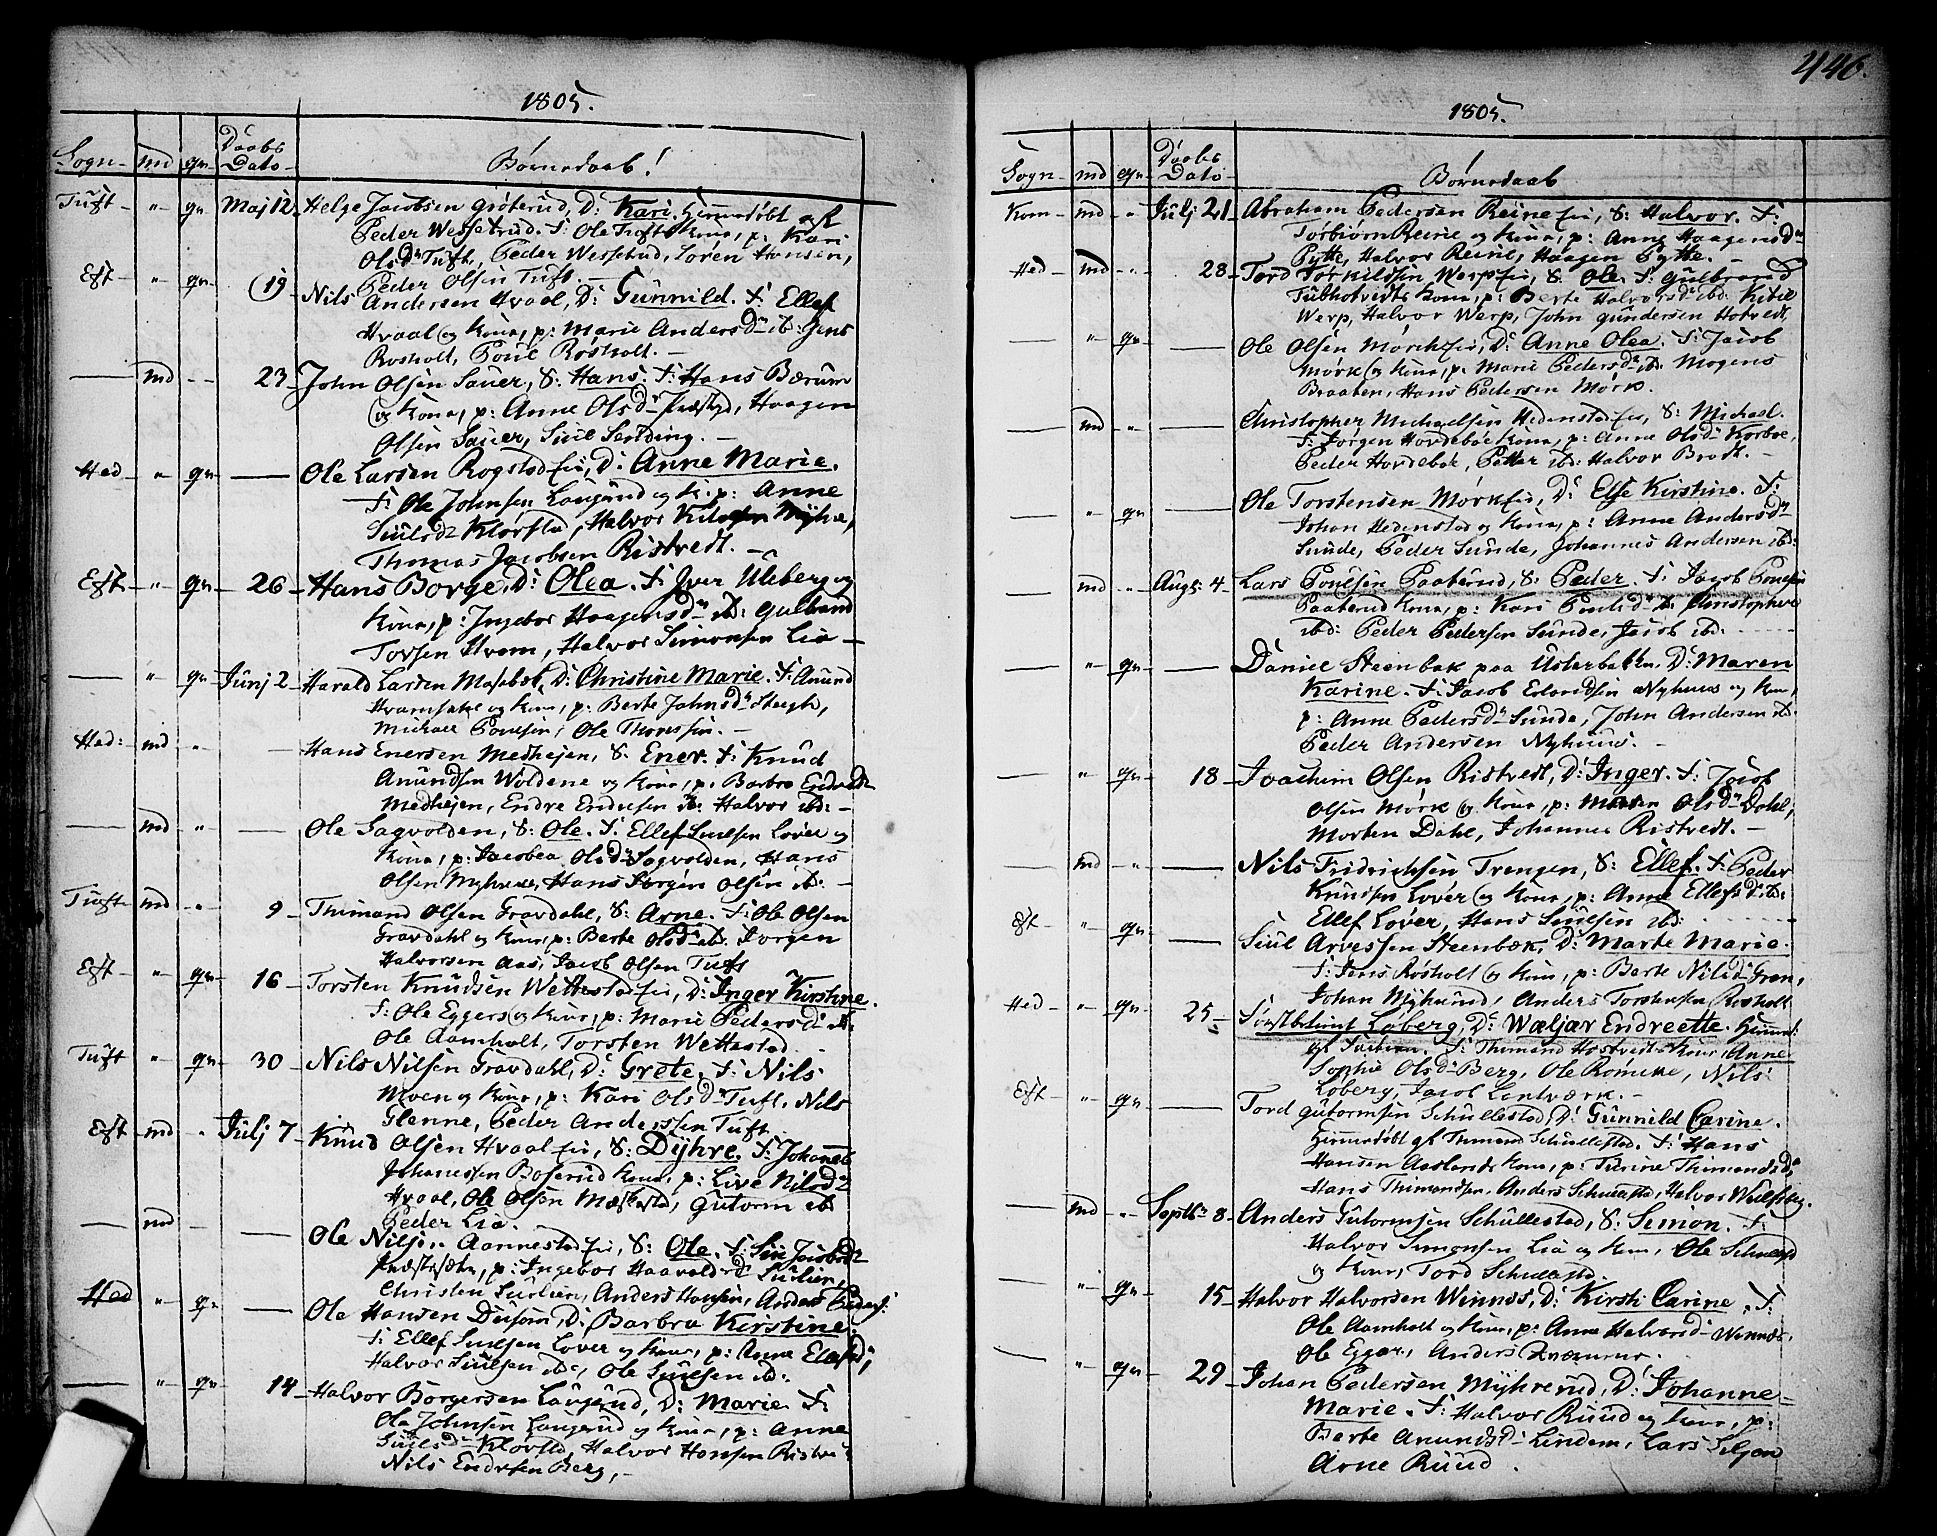 1805.
Sogn md qn Daabs Dato Børnedaab!
Tuft " qn Maj 12 Helge Jacobsen Grøterud, D: Kari. Hiemedøbt af
Peder Wessetrud. F: Ole Tufts Kone, p: Kari
Olsdr Tuft, Peder Wessetrud, Søren Hansen,
Peder Olsen Tuft.
Eft " qn (19 Nils Andersen Hvaal, D: Gunnild. F: Ellef
Hvaal og Kone, p: Marie Andersdr ib: Jens
Rosholt, Poul Rosholt.
md 23 John Olsen Sauer, S: Hans. F: Hans Bærum
og Kone, p: Anne Olsdr Haagen
Olsen Sauer, Siul
Hed " qn Ole Larsen Rogstad D: Anne Marie.
F: Ole Johnsen Laugerud og K: p: Anne
Siulsdr Klørstad, Halvor Myhre,
Thomas Jacobsen Ristvedt.
Eft " qn 26 Hans Borge, D: Olea. F: Iver Uleberg og
Kone, p: Ingebor Haagensdr ib: Gulbrand
Torsen Hvam, Halvor Simonsen Lia
" qn Junj 2 Harald Larsen D: Christine Marie. F: Anund
og Kone, p: Berte Johnsdr
Michael Poulsen, Ole Thomsen.
Hed: md " Hans Enersen Medhejen, S: Ener. F: Knud
Anundsen Woldene og Kone, p: Barbro Endresdr
Medhejen, Endre Endresen ib: Halvor ibd:
md " Ole Sagvolden, S: Ole. F: Ellef Siulsen Lover og
Kone, p: Jacobea Olsdr Sagvolden, Hans
Olsen Myhrene, Hans Jørgen Olsen ib:
Tuft md " 9 Thimand Olsen Gravdahl, S: Arne. F: Ole Olsen
Gravdahl og Kone, p: Berte Olsdr ib: Jørgen
Halvorsen Aas, Jacob Olsen Tuft
Eft " qn 16 Torsten Knudsen Wettestad D: Inger Kirstine.
F: Ole Eggers og Kone, p: Marie Pedersdr ib:
Ole Aamholt, Torsten Wettestad
Tuft " qn 30 Nils Nilsen Gravdahl, D: Grete. F: Nils
Moen og Kone, p: Kari Olsdr Tuft, Nils
Glenne, Peder Anderssen Tuft
Eft md " Julj 7 Knud Olsen Hvaal S: Dyhre. F: Johannes
Johannessen Boserud Kone, p: Live Nilsdr
Hvaal, Ole Olsen Gutorm ib
Peder Lia.
md Ole Nilsen Aannestad S: Ole. F: Siri Jacobsdr
p: Ingebor Haavoldsdr Surlien,
Christen Surlien, Anders Hansen, Anders Peders:
Hed " qn Ole Hansen D: Barbro Kirstine.
F: Ellef Siulsen Lover og Kone, p: Anne Ellefsdr
Halvor Siulsen ib:, Ole Siulsen ib:
" qn 14 Halvor Borgersen Laugerud, D: Marie. F:
Ole Johnsen Laugerud og Kone, p: Anne
Siulsdr Klørstad, Halvor Hansen
Nils Endresen Berg,
446.
1805.
Sogn md qn Daabs Dato Børnedaab
Kom md " Julj 21 Abraham Pedersen Reine S: Halvor. F:
Torbiørn Reine og Kone, p: Anne Haagensdr
Pytte, Halvor Reine, Haagen Pytte.
Hed md " 28 Tord Torkildsen Werp S: Ole. F: Gulbrand
Tubhotvedts Kone, p: Berte Halvorsdr ibd: Kitil
Werp, Halvor Werp, John Gundersen Hotvedt
" qn Ole Olsen Mørch D: Anne Olea. F: Jacob
Mørk og Kone, p: Marie Pedersdr ib: Mogens
Braaten, Hans Pedersen Mørk.
md " Christopher Michaelsen Hedenstad S: Michael.
F: Jørgen Hordebøe Kone, p: Anne Olsdr Korboe,
Peder Hordeboe, Petter ibd: Halvor Brodt.
" qn Ole Torstensen Mørk D: Else Kirstine. F:
Johan Hedenstad og Kone, p: Anne Andersdr
Sunde, Peder Sunde, Johannes Andersen ib:
md " Augt: 4 Lars Poulsen Paaterud, S: Peder. F: Jacob Poulsen
Paaterud Kone, p: Kari Poulsdr ib: Christopher
ibd: Peder Pedersen Sunde, Jacob ibd:
" qn Daniel Steenbak paa D: Maren
Karine. F: Jacob Nyhuus og Kone,
p: Anne Pedersdr Sunde, John Andersen ib:
Peder Andersen Nyhuus.
" qn 18 Joachim Olsen Ristvedt, D: Inger. F: Jacob
Olsen Mørk og Kone, p: Maren Olsdr Dahl,
Morten Dahl, Johannes Ristvedt.
md " Nils Fridrichsen Trengen, S: Ellef. F: Peder
Knudsen Lover og Kone, p: Anne Ellefsdr ib:
Ellef Lover, Hans Siulsen ib:
Eft " qn Siul Arvessen Steenbæk, D: Marte Marie.
F: Jens Rosholt og Kone, p: Berte Nilsdr Gren,
Johan Myhrund, Anders Torstensen Rosholt
Hed " qn 25 Løberg, D: Wæljær Endreette. Hiemed:
af F: Thimand Hostvedts Kone, Anne
Sophie Olsdr Berg, Ole Nils
Løberg, Jacob
Eft " qn Tord Gutormsen Schullestad, D: Gunnild Carine.
Hiemedøbt af Thimand Schullestad. F: Hans
Hansen Aaslands Kone, p: Thimandsdr
Hans Thimandsen, Anders Schullestad, Halvor
md " Septbr 8 Anders Gutormsen Schullestad, S: Simon. F:
Halvor Simonsen Lia og Kone, Ole Schullestad
og Kone, Tord Schullestad.
" qn 15 Halvor Halvorsen Winnes, D: Kirsti Carine. F:
Ole Aamholt og Kone, p: Anne Halvorsdr Winnes,
Ole Eggar, Anders
" qn 29 Johan Pedersen Myhrerud, D: Johanne
Marie. F: Halvor Ruud og Kone, p:
Berte Anundsdr Lindem, Lars Seljom
Arne Ruud.